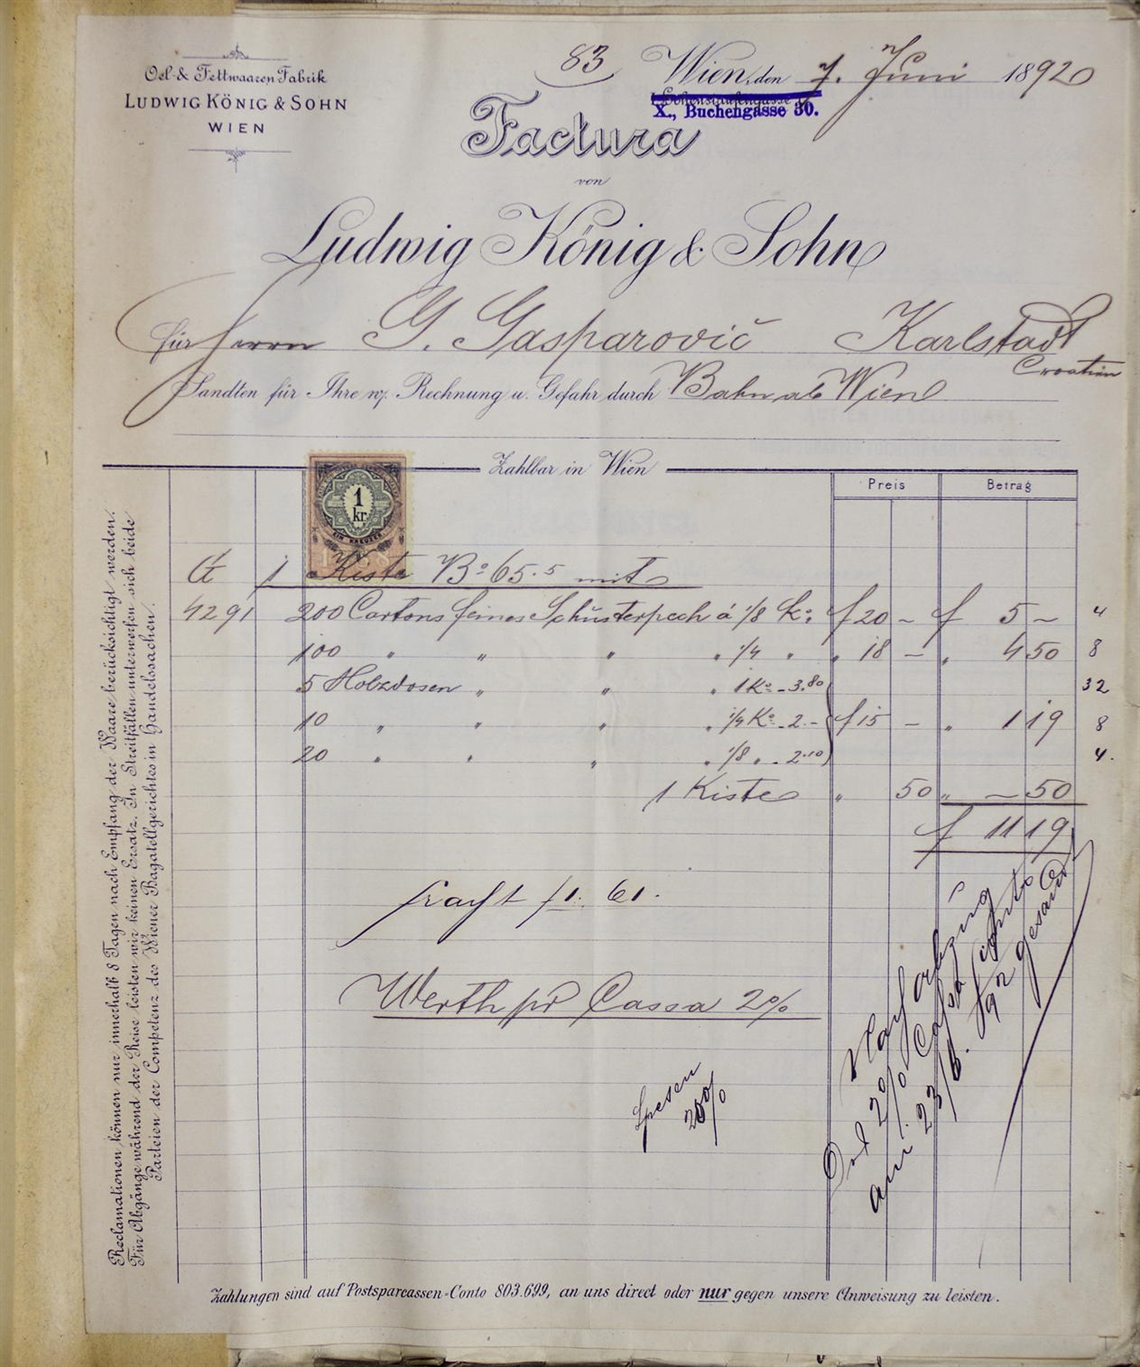 83
Wien, den 7. Juni 1892
Oel- & Fettwaaren Fabrik
LUDWIG KÖNIG & SOHN
WIEN
X., Buchengasse 30.
Factura
von
Ludwig König & Sohn
für Herrn G. Gasparović Karlstadt
Croatien
Sandten für Ihre w. Rechnung u. Gefahr durch Bahn ab Wien
Zahlbar in Wien
Preis Betrag
1
kr.
EIN KREUZER
1 Kiste Bo 65.5 mit
4291 200 Cartons feines Schusterpech á 1/8 Ko f 20 – f 5 – 4
100 " " " " 1/4 " " 18 – " 4 50 8
5 Holzdosen " " " 1 Ko - 3.80 32
10 " " " " 1/4 Ko - 2.- f 15 – " 1 19 8
20 " " " " 1/8 " - 2.10 4.
1 Kiste " 50 " – 50
f 11 19
fracht f 1. 61.
Werth pr Cassa 2%
Spesen
20%
Nach abzug
2% Cassa Sconto
am 23/6. 892 gesandt
Reclamationen können nur innerhalb 8 Tagen nach Empfang der Waare berücksichtigt werden.
Für Abgänge während der Reise leisten wir keinen Ersatz. In Streitfällen unterwerfen sich beide
Parteien der Competenz des Wiener Bagatellgerichtes in Handelssachen.
Zahlungen sind auf Postsparcassen-Conto 803.699, an uns direct oder nur gegen unsere Anweisung zu leisten.